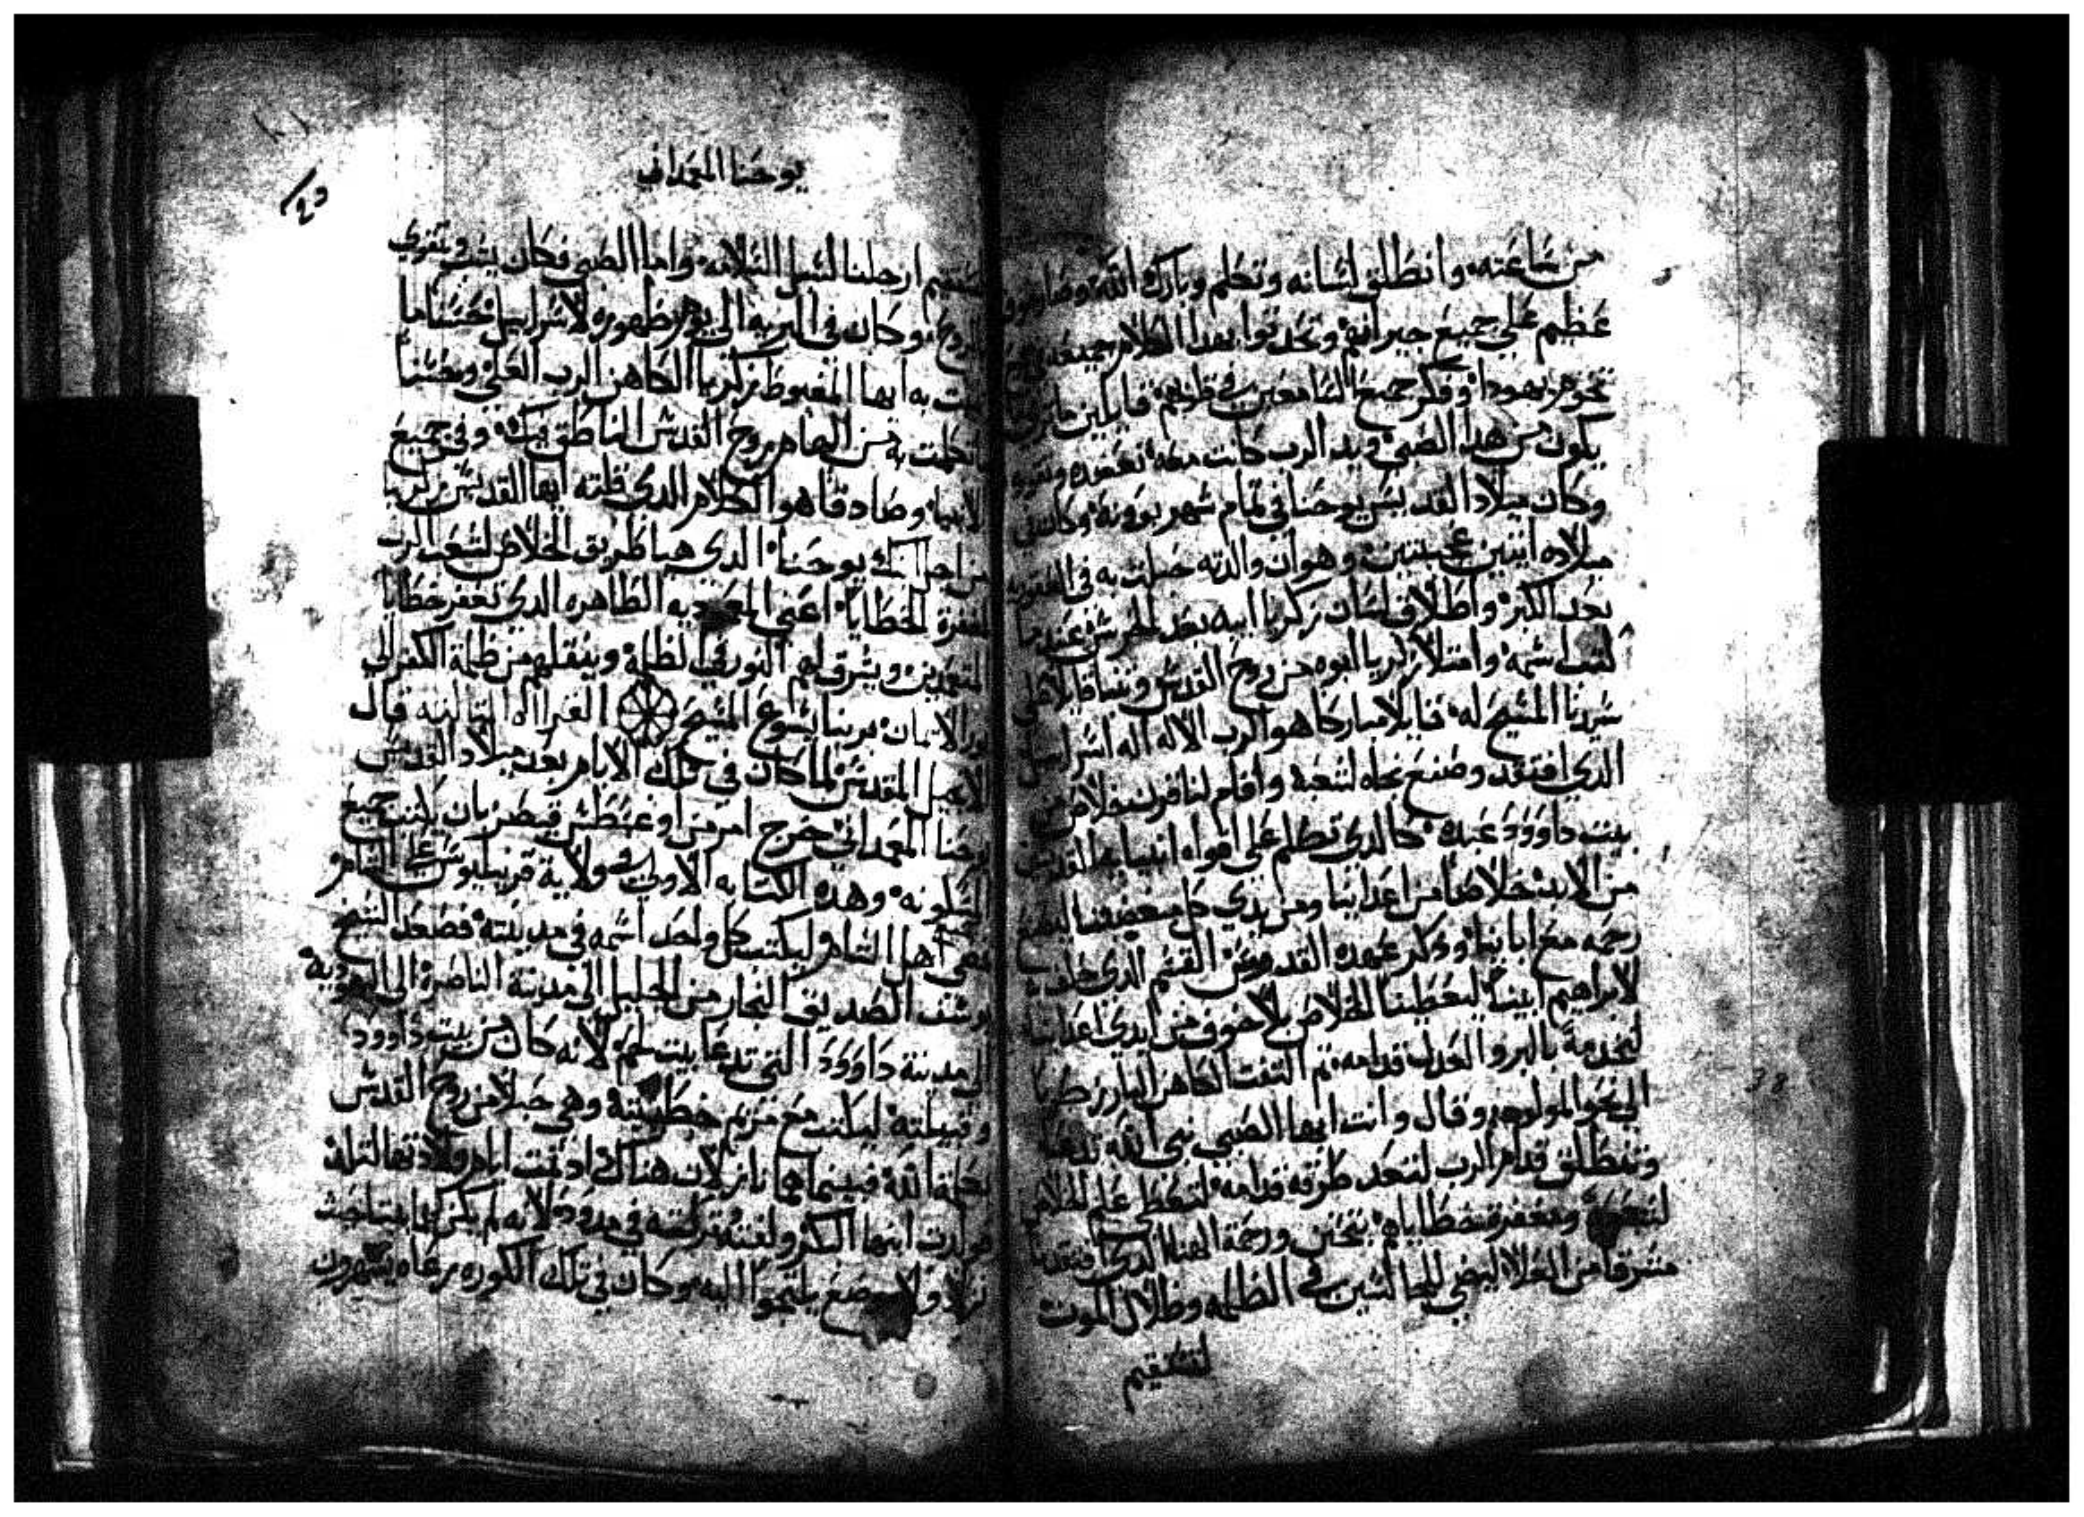 من ساعته وانطلق لسانه وتكلم وبارك الله وصار خوف
عظيم على جميع جيرانهم وتحدثوا بهدا الكلام جميعه في
تخوم يهودا وفكر جميع السامعين في قلوبهم قايلين ماترى
يكون من هدا الصبي ويد الرب كانت معه تعضده وتقويه
وكان ميلاد القديس يوحنا في تمام شهر بوونه وكان في
ميلاده اثنين عجيبتين وهو ان والدته حبلت به في
بعد الكبر وانطلاق لسان زكريا ابيه بعد الخرس عند ما
كتب اسمه وامتلا زكريا ابوه من روح القدس وتنبا قايلا على
سيدنا المسيح له قايلا مباركا هو الرب الاله اله اسراييل
الدي افتقد وصنع نجاه لشعبه واقام لنا قرن خلاص من
بيت داوود عبده كالدي تكلم على افواه انبيايه القديسين
من الابد خلاصا من اعداينا ومن يدي كل مبغضينا ليصنع
رحمه مع اباينا ودكر عهده القدوس القسم الدي حلف به
لابراهيم ابينا ليعطينا الخلاص بلا خوف من ايدي اعداينا
لنخدمه بالبر والعدل قدامه ثم التفت الكاهن البار زكريا
الي نحو المولود وقال وانت ايها الصبي نبي الله تدعا
وتنطلق قدام الرب لتعد طرقه قدامه لتعطي علم الخلاص
لشعبه ومغفرة خطاياهم بتحنن ورحمة الهنا الدي افتقدنا
مشرقا من العلا ليضي للجالسين في الظلمه وظلال الموت
لتستقيم
يوحنا المعمدان
لتستقيم ارجلنا لسبل السلامه واما الصبي فكان ينشو ويتقوي
بالروح وكان في البريه الى يوم ظهوره لاسراييل حسنا ما
به ايها المغبوط زكريا الكاهن الرب العلي وحسنا
ما تكلمت به من الهام روح القدس الناطق فيك وفي جميع
الانبيا وصادقا هو الكلام الدي قلته ايها القديس زكريا
من اجل ابنك يوحنا الدي هيا طريق الخلاص لشعب الرب
لمغفرة الخطايا اعني المعموديه الطاهره الدي تغفر خطايا
المتعمدين ويشرق لهم النور في الظلمة وينقلهم من ظلمة الكفر الي
نور الايمان بربنا يسوع المسيح القراه التالته قال
الانجيل المقدس لما كان في تلك الايام بعد ميلاد القديس
يوحنا المعمداني خرج امر من اوغسطس قيصر بان يكتب جميع
المسكونه وهده الكتابه الاولي ولاية قرينيوس على الشام
اهل الشام ليكتتب كل واحد اسمه في مدينته فصعد الشيخ
يوسف الصديق النجار من الجليل الى مدينة الناصرة الى اليهودية
الى مدينة داوود التي تدعا بيت لحم لانه كان من بيت داوود
وقبيلته ليكتتب مع مريم خطيبته وهي حبلا من روح القدس
بكلمة الله فبينما هما نازلان هناك اد تمت ايام ولادتها لتلد
فولدت ابنها البكر ولفته وتركته في مدود لانه لم يكن لهما حيث
نزلا ولا موضع يلتجوا اليه وكان في تلك الكوره رعاه يسهرون